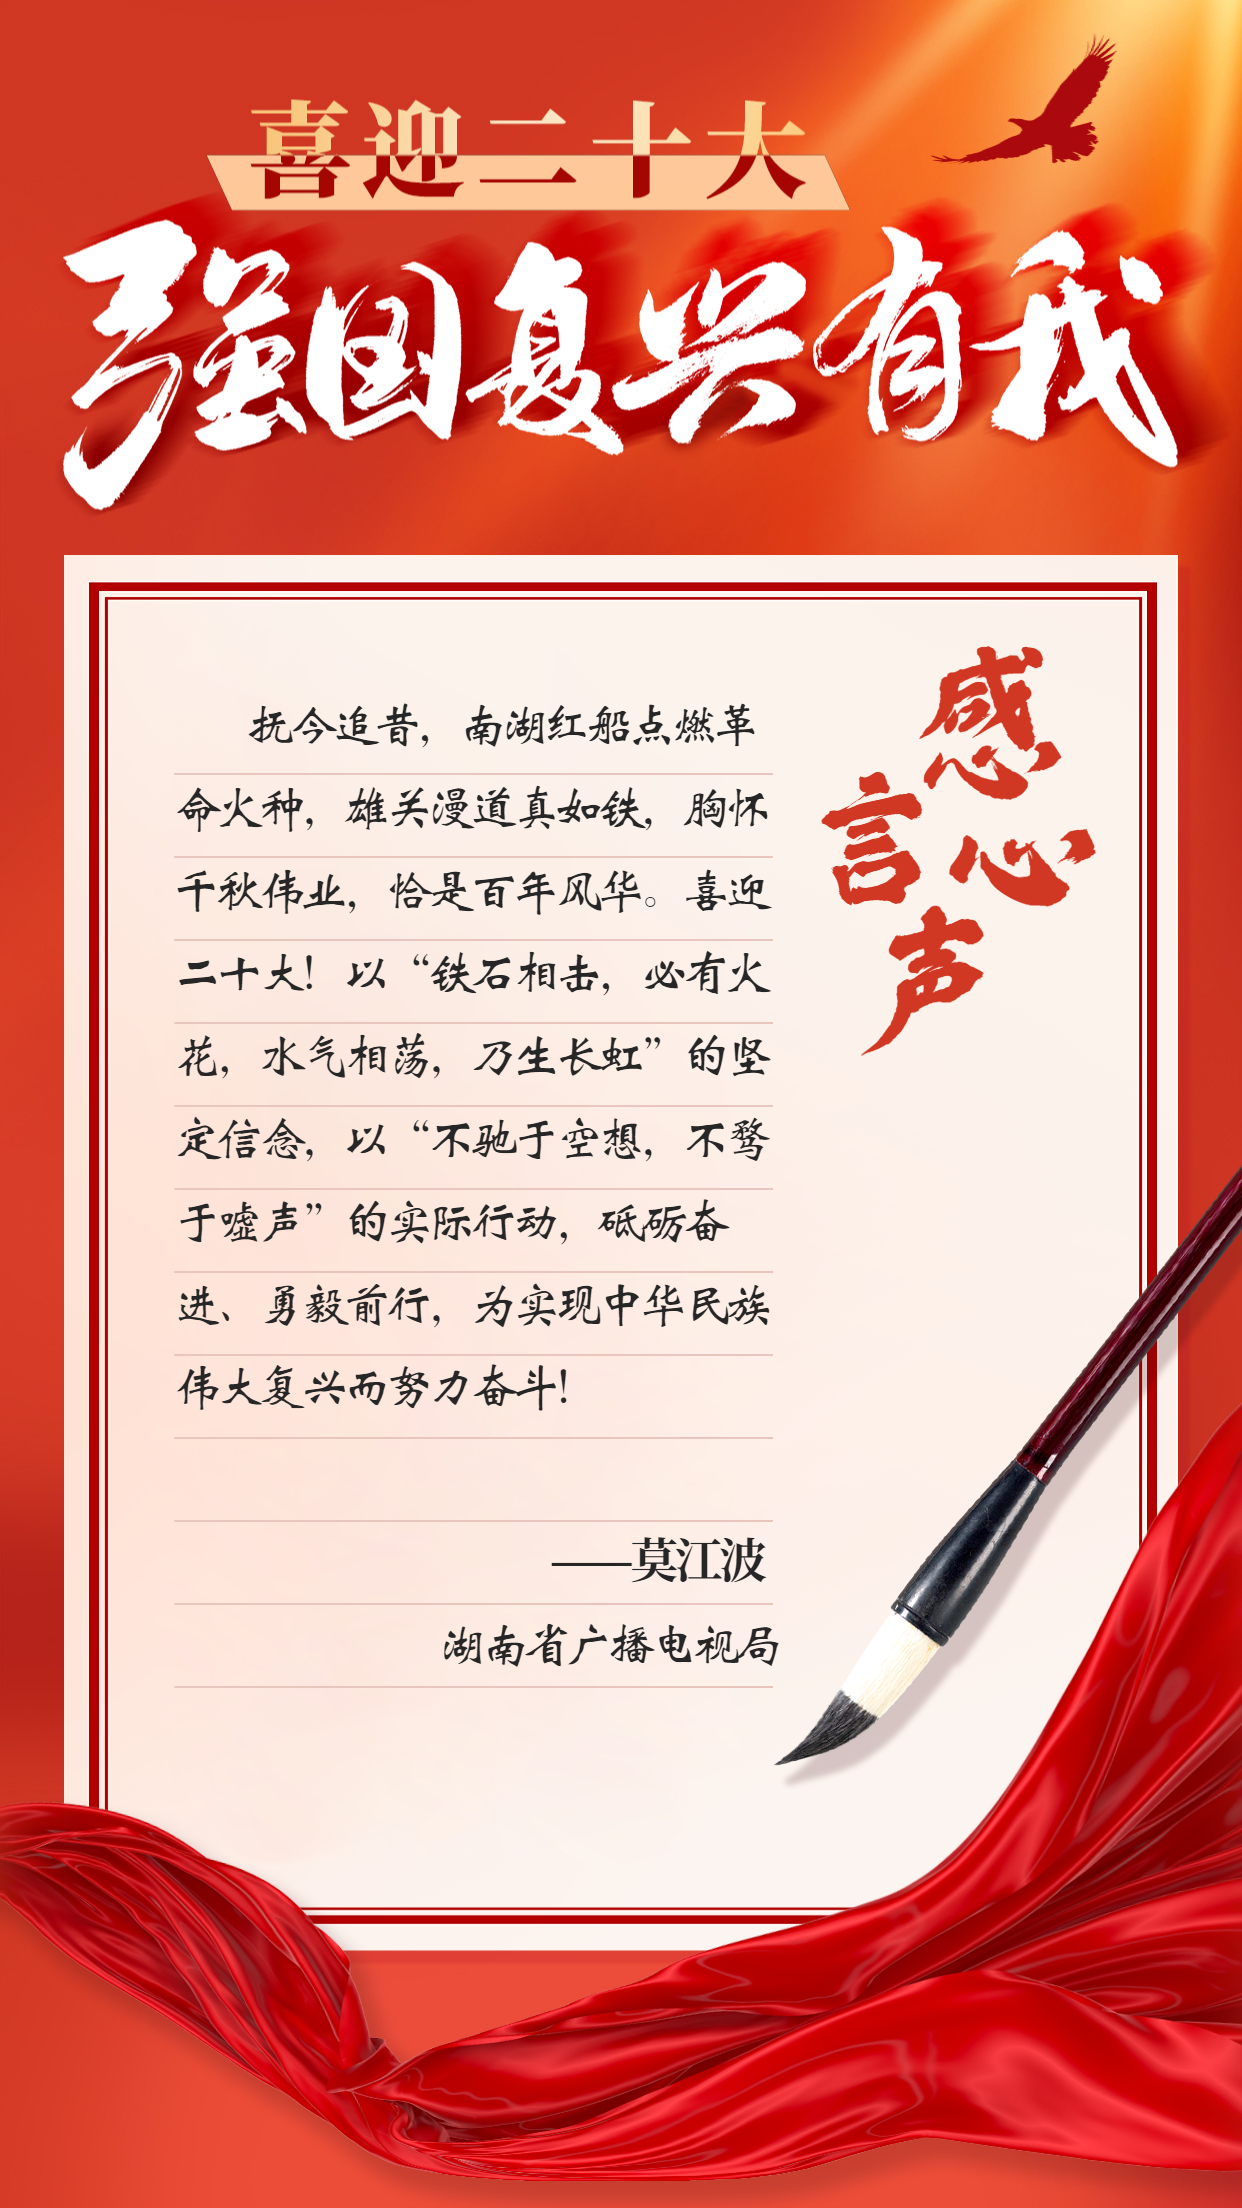 喜迎二十大
强国复兴有我
感言心声
抚今追昔，南湖红船点燃革
命火种，雄关漫道真如铁，胸怀
千秋伟业，恰是百年风华。喜迎
二十大！以“铁石相击，必有火
花，水气相荡，乃生长虹”的坚
定信念，以“不驰于空想，不骛
于嘘声”的实际行动，砥砺奋
进、勇毅前行，为实现中华民族
伟大复兴而努力奋斗！
——莫江波
湖南省广播电视局